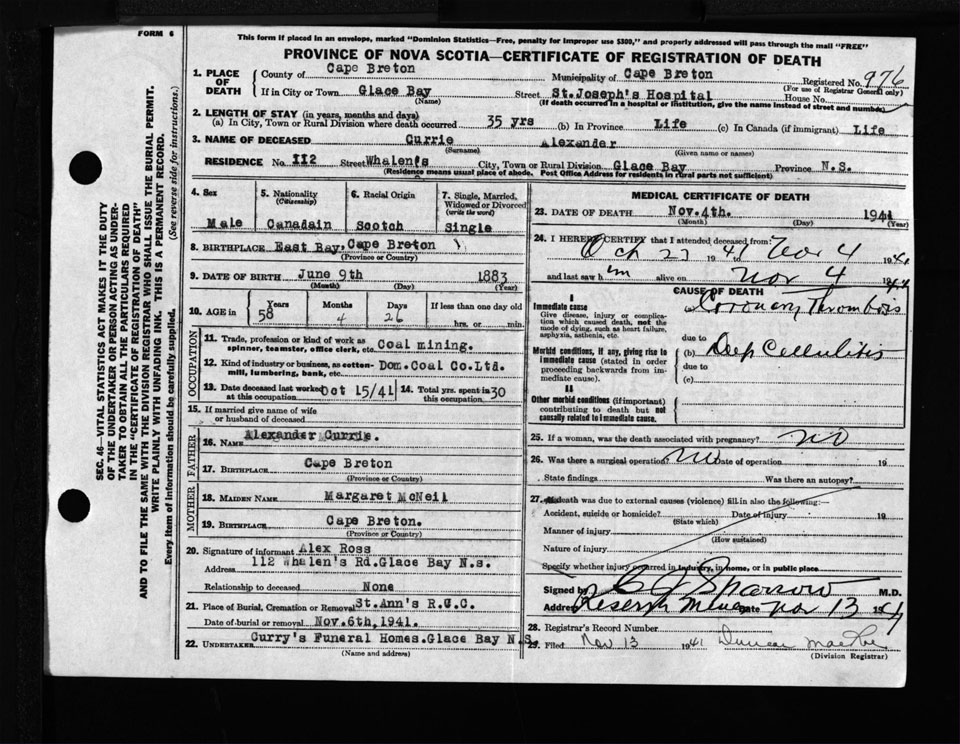 FORM 6
This form if placed in an envelope, marked "Dominion Statistics—Free, penalty for improper use $300," and properly addressed will pass through the mail "FREE"
PROVINCE OF NOVA SCOTIA—CERTIFICATE OF REGISTRATION OF DEATH
SEC. 46—VITAL STATISTICS ACT MAKES IT THE DUTY
OF THE UNDERTAKER OR PERSON ACTING AS UNDER-
TAKER TO OBTAIN ALL THE PARTICULARS REQUIRED
IN THE "CERTIFICATE OF REGISTRATION OF DEATH"
AND TO FILE THE SAME WITH THE DIVISION REGISTRAR WHO SHALL ISSUE THE BURIAL PERMIT.
WRITE PLAINLY WITH UNFADING INK. THIS IS A PERMANENT RECORD.
Every item of Information should be carefully supplied. (See reverse side for instructions.)
1. PLACE OF DEATH
County of Cape Breton Municipality of Cape Breton Registered No. 976
(For use of Registrar General only)
If in City or Town Glace Bay Street St.Joseph's Hospital House No.
(Name) (If death occurred in a hospital or institution, give the name instead of street and number)
2. LENGTH OF STAY (in years, months and days)
(a) In City, Town or Rural Division where death occurred 35 yrs (b) In Province Life (c) In Canada (if immigrant) Life
3. NAME OF DECEASED Currie Alexander
(Surname) (Given name or names)
RESIDENCE No. 112 Street Whalen's City, Town or Rural Division Glace Bay Province N.S.
(Residence means usual place of abode. Post Office Address for residents in rural parts not sufficient)
4. Sex Male
5. Nationality (Citizenship) Canadain
6. Racial Origin Scotch
7. Single, Married, Widowed or Divorced (write the word) Single
8. BIRTHPLACE East Bay,Cape Breton
(Province or Country)
9. DATE OF BIRTH June 9th 1883
(Month) (Day) (Year)
10. AGE in Years 58 Months 4 Days 26 If less than one day old hrs. or min.
OCCUPATION
11. Trade, profession or kind of work as spinner, teamster, office clerk, etc. Coal mining.
12. Kind of industry or business, as cotton-mill, lumbering, bank, etc. Dom.Coal Co.Ltd.
13. Date deceased last worked at this occupation Oct 15/41 14. Total yrs. spent in this occupation 30
15. If married give name of wife or husband of deceased
FATHER
16. NAME Alexander Currie.
17. BIRTHPLACE Cape Breton
(Province or Country)
MOTHER
18. MAIDEN NAME Margaret McNeil
19. BIRTHPLACE Cape Breton.
(Province or Country)
20. Signature of informant Alex Ross
Address 112 Whalen's Rd.Glace Bay N.s.
Relationship to deceased None
21. Place of Burial, Cremation or Removal St.Ann's R.C.C.
Date of burial or removal Nov.6th,1941.
22. UNDERTAKER Curry's Funeral Homes.Glace Bay N.S.
(Name and address)
MEDICAL CERTIFICATE OF DEATH
23. DATE OF DEATH Nov.4th. 1941
(Month) (Day) (Year)
24. I HEREBY CERTIFY that I attended deceased from:
Oct 27 1941 Nov 4 1941
and last saw him alive on Nov 4 1941
CAUSE OF DEATH
I
Immediate cause
Give disease, injury or complica-
tion which caused death, not the
mode of dying, such as heart failure,
asphyxia, asthenia, etc.
(a) Coronary Thrombosis
due to
Morbid conditions, if any, giving rise to
immediate cause (stated in order
proceeding backwards from im-
mediate cause).
(b) Deep Cellulitis
due to
(c)
II
Other morbid conditions (if important)
contributing to death but not
causally related to immediate cause.
25. If a woman, was the death associated with pregnancy? no
26. Was there a surgical operation? no Date of operation 19
State findings Was there an autopsy?
27. If death was due to external causes (violence) fill in also the following:
Accident, suicide or homicide? Date of injury 19
(State which)
Manner of injury
(How sustained)
Nature of injury
Specify whether injury occurred in industry, in home, or in public place
Signed by Sparrow M.D.
Address Reserve Mines Date Nov 13 1941
28. Registrar's Record Number
29. Filed Nov 13 1941 Duncan
(Division Registrar)